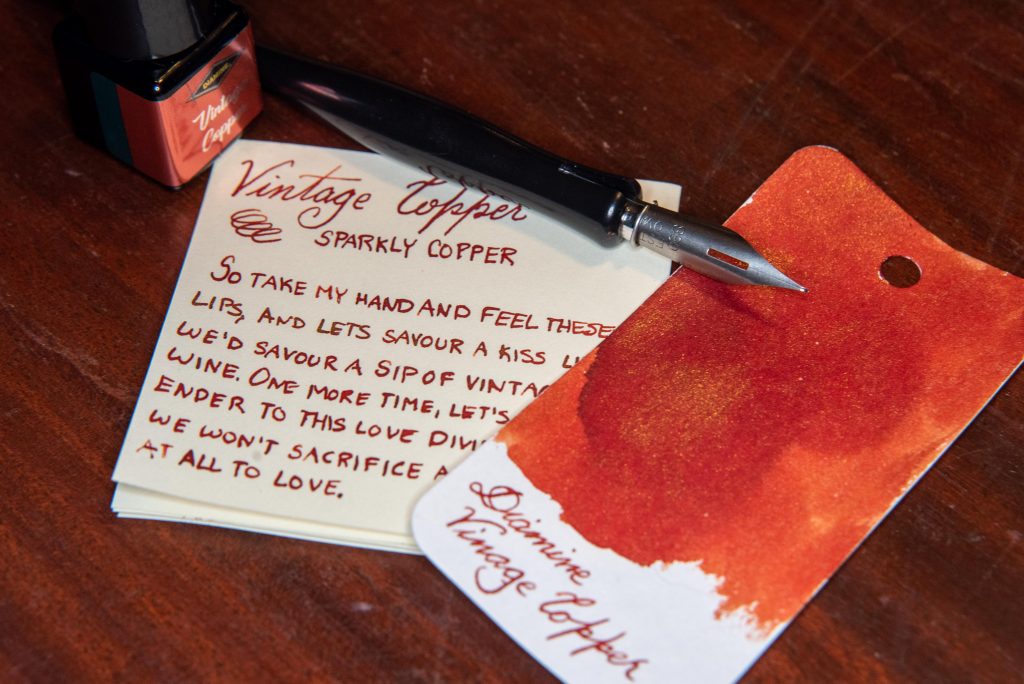 DIAMINE
Vintage
Copper
Vintage Copper
SPARKLY COPPER
SO TAKE MY HAND AND FEEL THESE
LIPS, AND LETS SAVOUR A KISS
WE'D SAVOUR A SIP OF VINTAG
WINE. ONE MORE TIME, LET'S
ENDER TO THIS LOVE DIVI
WE WON'T SACRIFICE A
AT ALL TO LOVE.
Diamine
Vinage Copper